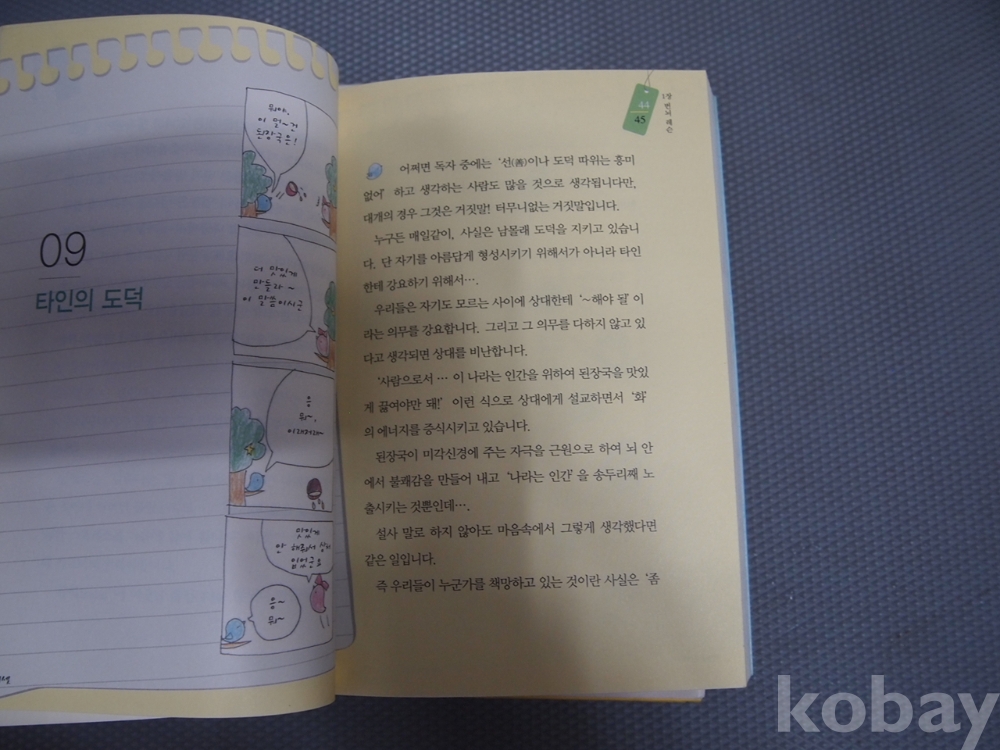 09
타인의 도덕
뭐야,
이 멀~건
된장국은!
더 맛있게
만들라~
이 말씀이시군
응
뭐~,
맛있게
안 해줘서 상처
입었군요
응~
뭐~
44
45
1장 번뇌 레슨
어쩌면 독자 중에는 ‘선(善)이나 도덕 따위는 흥미
없어’ 하고 생각하는 사람도 많을 것으로 생각됩니다만,
대개의 경우 그것은 거짓말! 터무니없는 거짓말입니다.
누구든 매일같이, 사실은 남몰래 도덕을 지키고 있습니
다. 단 자기를 아름답게 형성시키기 위해서가 아니라 타인
한테 강요하기 위해서….
우리들은 자기도 모르는 사이에 상대한테 ‘~해야 될’ 이
라는 의무를 강요합니다. 그리고 그 의무를 다하지 않고 있
다고 생각되면 상대를 비난합니다.
‘사람으로서 … 이 나라는 인간을 위하여 된장국을 맛있
게 끓여야만 돼!’ 이런 식으로 상대에게 설교하면서 ‘화’
의 에너지를 증식시키고 있습니다.
된장국이 미각신경에 주는 자극을 근원으로 하여 뇌 안
에서 불쾌감을 만들어 내고 ‘나라는 인간’ 을 송두리째 노
출시키는 것뿐인데….
설사 말로 하지 않아도 마음속에서 그렇게 생각했다면
같은 일입니다.
즉 우리들이 누군가를 책망하고 있는 것이란 사실은 ‘좀
kobay